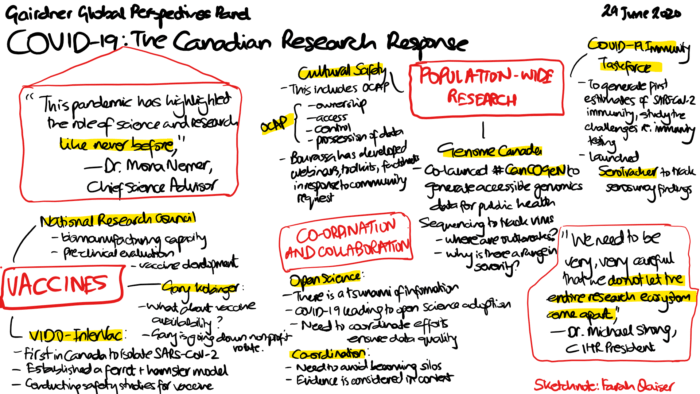 Gairdner Global Perspectives Panel
29 June 2020
COVID-19: The Canadian Research Response
"This pandemic has highlighted
the role of science and research
like never before,"
— Dr. Mona Nemer,
Chief Science Advisor
Cultural Safety
- This includes OCAP
OCAP
- ownership
- access
- control
- possession of data
- Bourassa has developed
webinars, toolkits, factsheets
in response to community
request
POPULATION-WIDE
RESEARCH
Genome Canada
- Co-launched #CanCOGeN to
generate accessible genomics
data for public health
Sequencing to track virus
- where are outbreaks?
- why is there a range in
severity?
COVID-19 Immunity
Taskforce
- To generate first
estimates of SARS-CoV-2
immunity, study the
challenges re: immunity
testing
- Launched
Serotracker to track
serosurvey findings
National Research Council
- biomanufacturing capacity
- Pre-clinical evaluation
- vaccine development
VACCINES
Gary Kobinger:
- What about vaccine
availability?
- Gary is going down nonprofit
route.
VIDO-InterVac:
- First in Canada to isolate SARS-CoV-2
- Established a ferret + hamster model
- Conducting safety studies for vaccine
CO-ORDINATION
AND COLLABORATION
Open Science:
- There is a tsunami of information
- COVID-19 leading to open science adoption
- Need to coordinate efforts
ensure data quality
Co-ordination:
- Need to avoid becoming silos
- Evidence is considered in context
"We need to be
very, very careful
that we do not let the
entire research ecosystem
come apart,"
— Dr. Michael Strong,
CIHR President
Sketchnote: Farah Qaiser